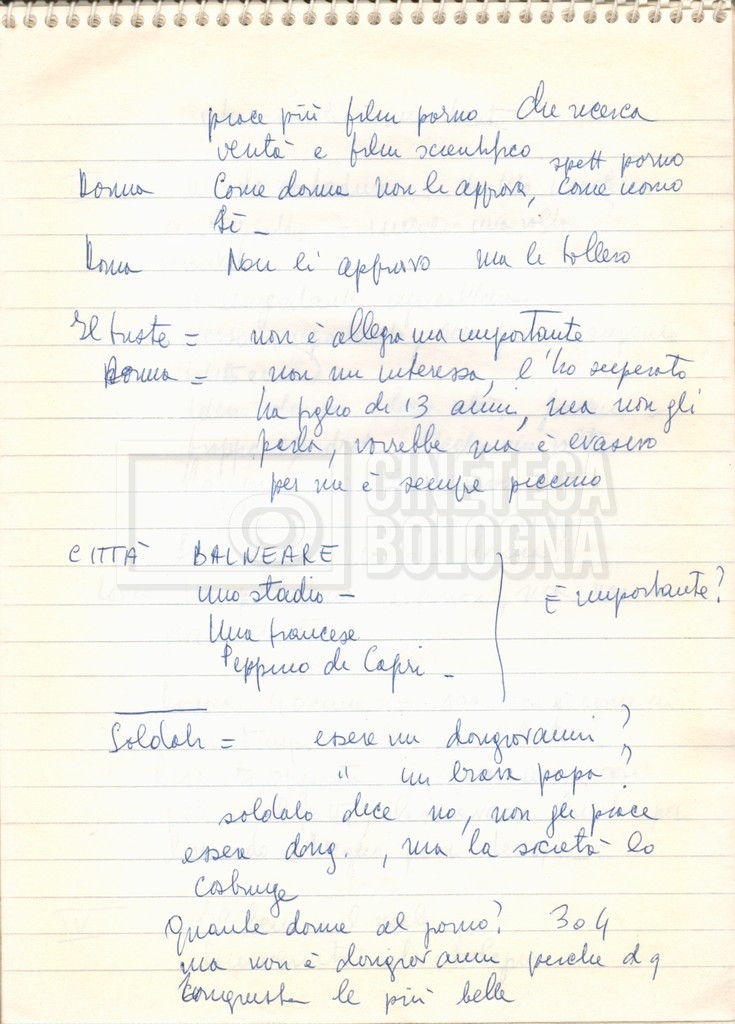 piace più film porno che ricerca
verità e film scientifico
spett porno
Donna Come donna non li approva, come uomo
sì -
Donna Non li approvo ma li tollero
= non è allegra ma importante
Donna = non mi interessa, l'ho superato
ha figlio di 13 anni, ma non gli
parla, vorrebbe ma è evasivo
per me è sempre piccino
CINETECA
BOLOGNA
CITTÀ BALNEARE
uno stadio -
Una francese
Peppino di Capri -
È importante?
Soldati = essere un dongiovanni?
" un bravo papà?
soldato dice no, non gli piace
essere dong., ma la società lo
costringe
Quante donne al giorno? 3 o 4
ma non è dongiovanni perché d g
conquista le più belle